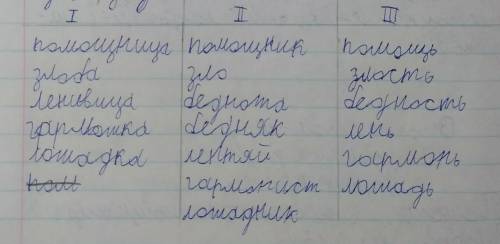 I II III
помощница помощник помощь
злоба зло злость
ленивица беднота бедность
гармошка бедняк лень
лошадка лентяй гармонь
гармонист лошадь
лошадник